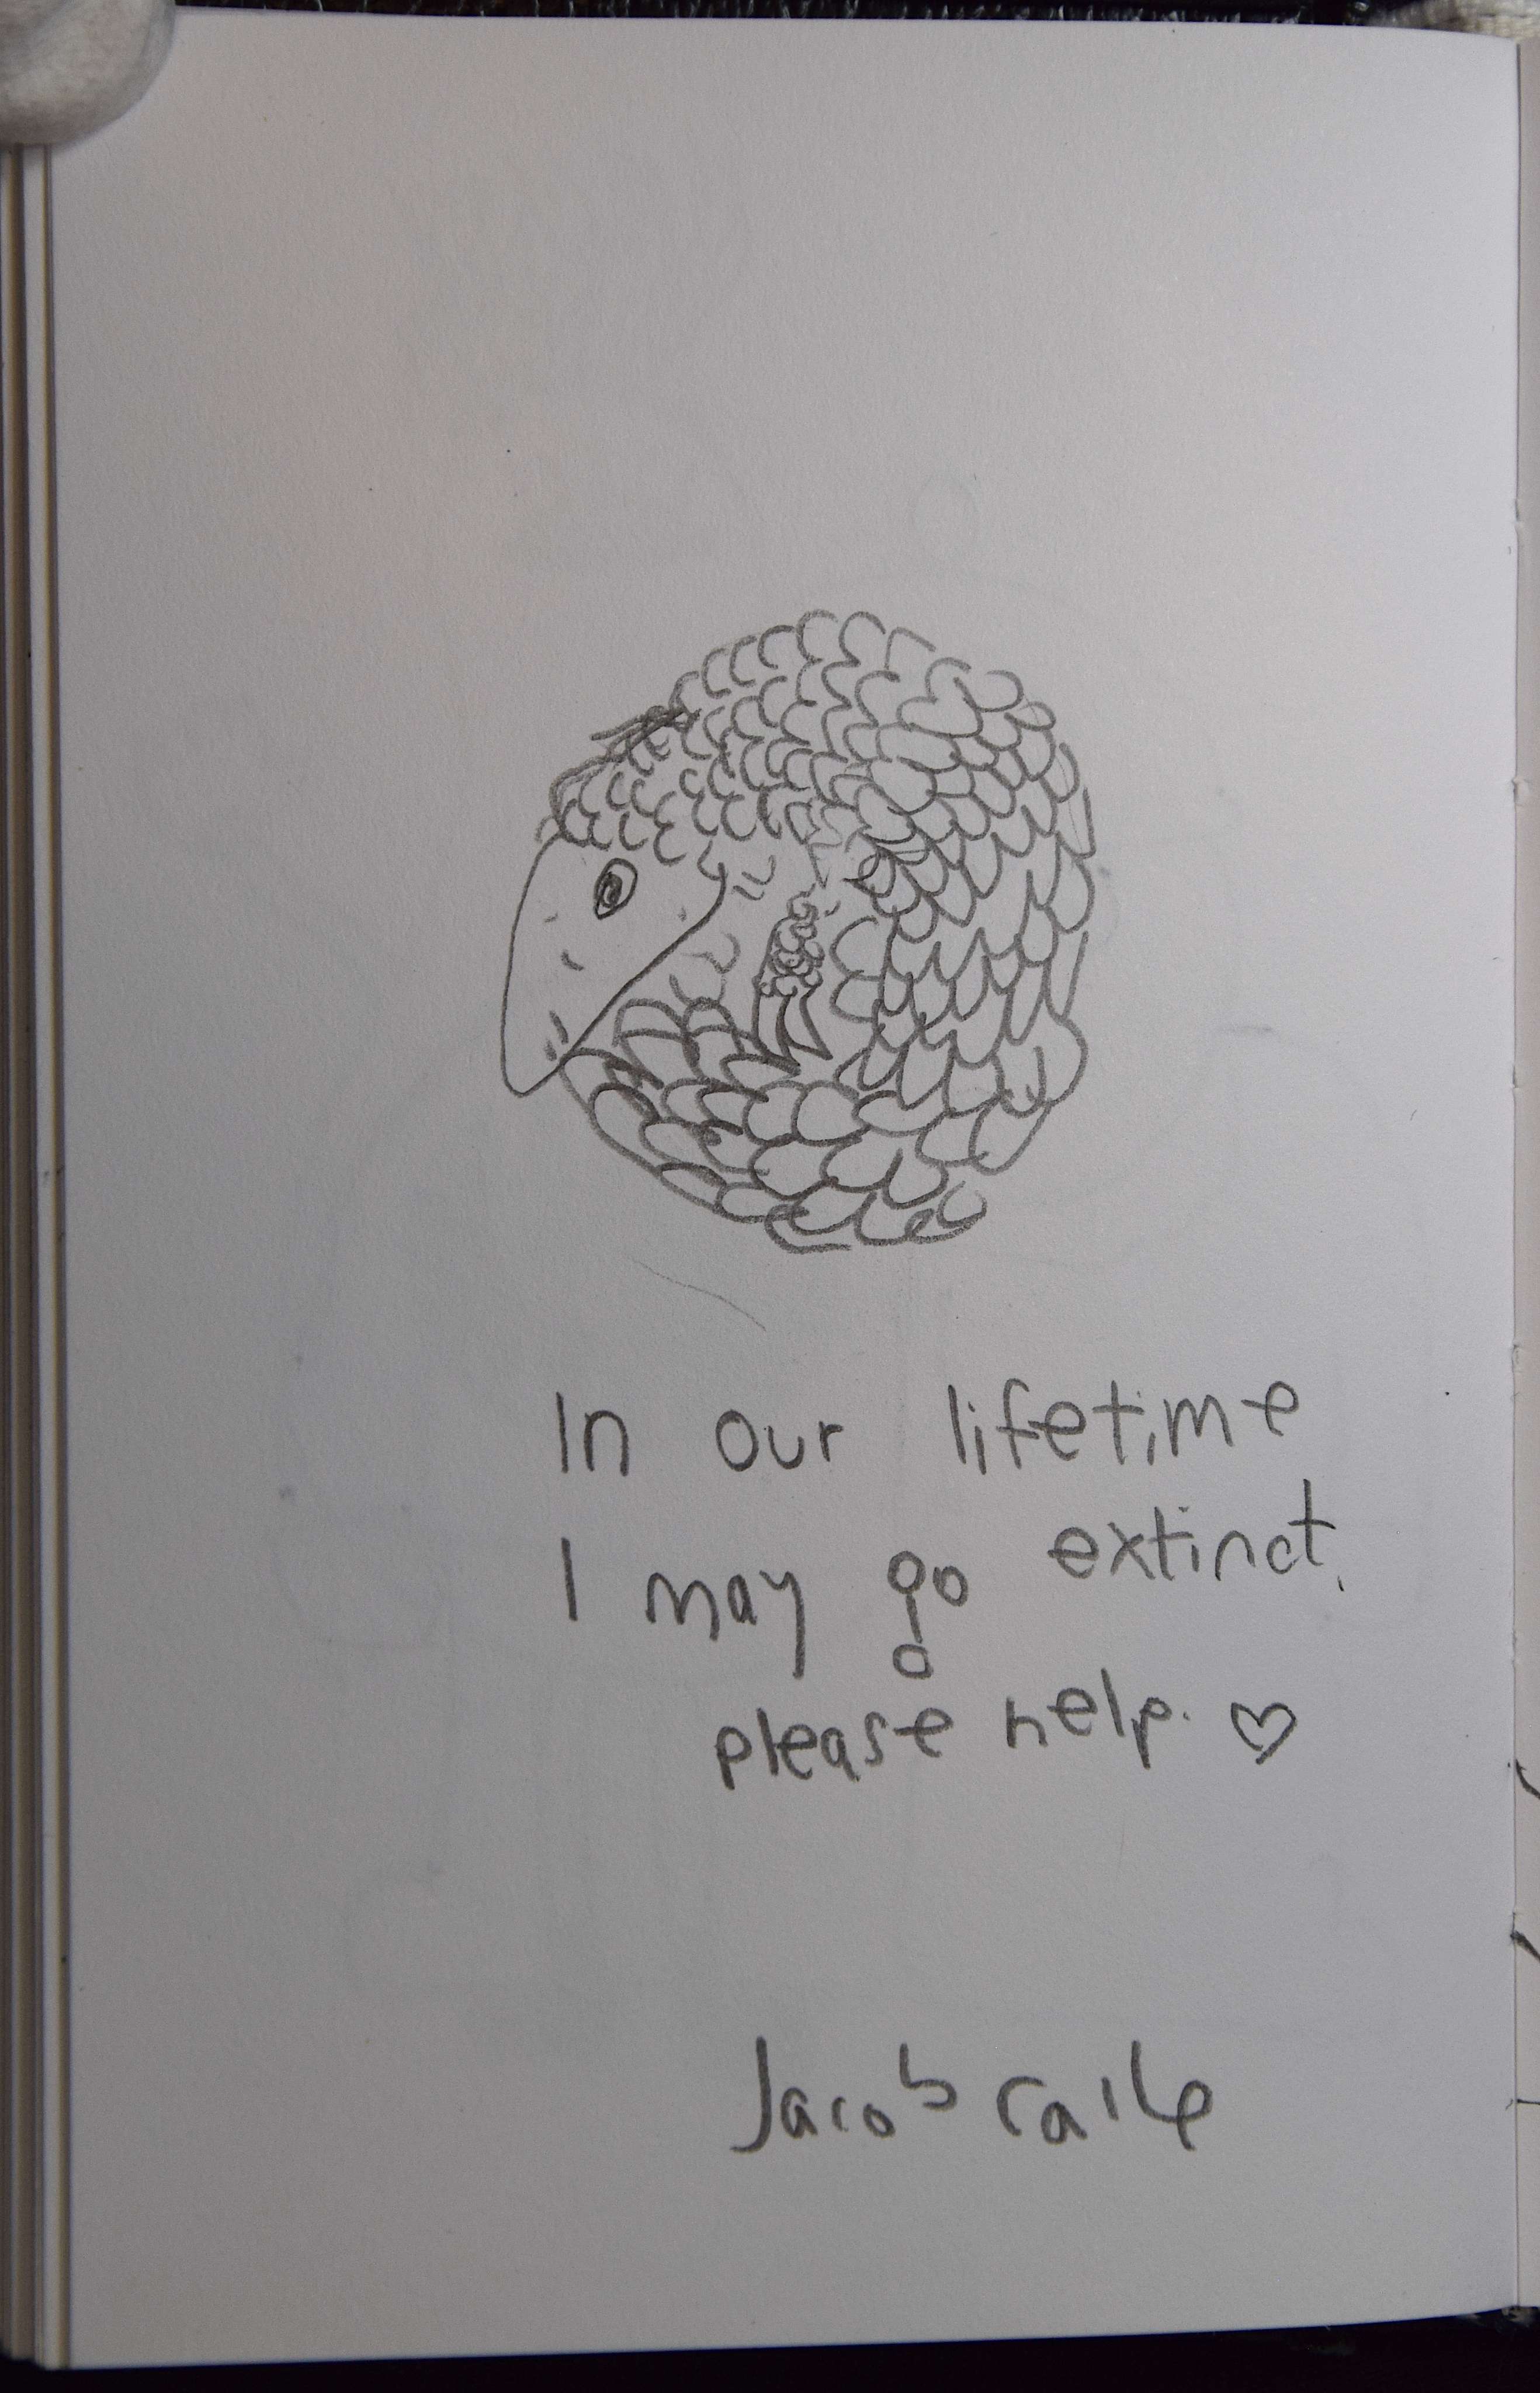 In our lifetime
I may go extinct.
please help. ♡
Jacob